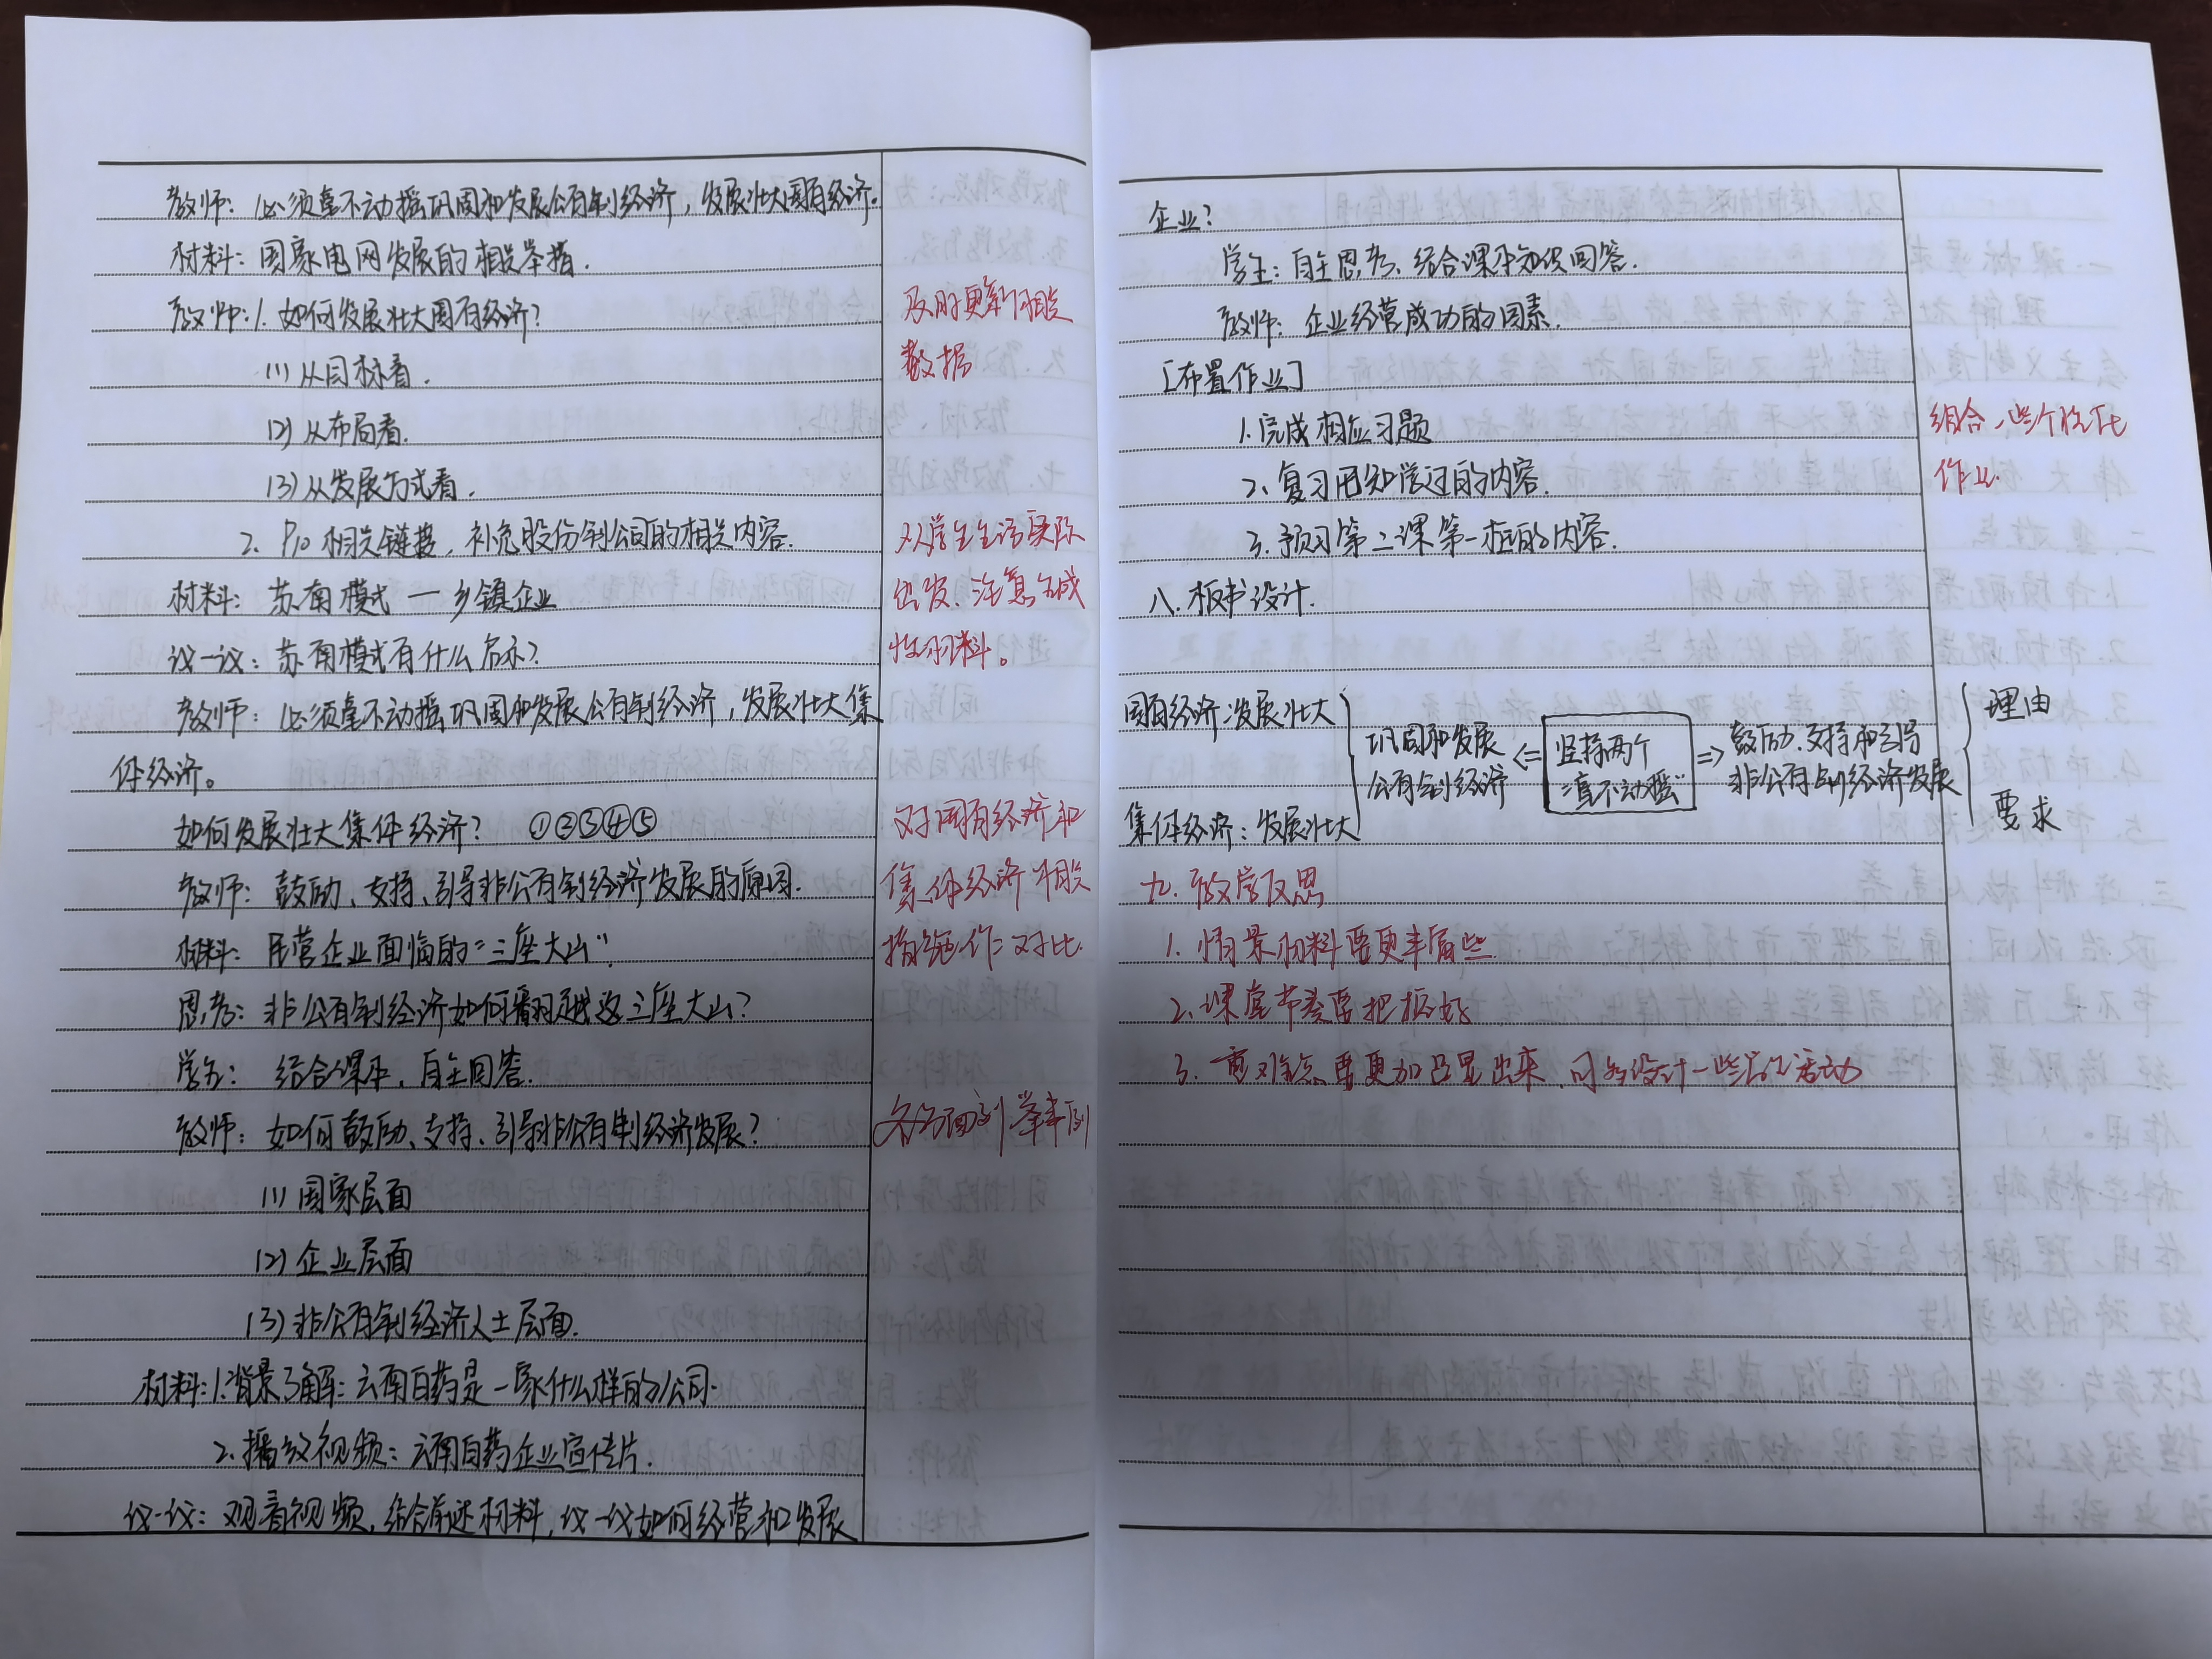 教师：必须毫不动摇巩固和发展公有制经济，发展壮大国有经济。
材料：国家电网发展的相关举措.
教师：1. 如何发展壮大国有经济？
(1) 从目标看.
(2) 从布局看.
(3) 从发展方式看.
2. P10 相关链接，补充股份制公司的相关内容.
材料：苏南模式 — 乡镇企业
议一议：苏南模式有什么启示？
教师：必须毫不动摇巩固和发展公有制经济，发展壮大集
体经济。
如何发展壮大集体经济？ ①②③④⑤
教师：鼓励、支持、引导非公有制经济发展的原因.
材料：民营企业面临的“三座大山”.
思考：非公有制经济如何翻越这三座大山？
学生：结合课本，自主回答.
教师：如何鼓励、支持、引导非公有制经济发展？
(1) 国家层面
(2) 企业层面
(3) 非公有制经济人士层面.
材料：1.背景了解：云南白药是一家什么样的公司.
2. 播放视频：云南白药企业宣传片.
议一议：观看视频，结合前述材料，议一议如何经营和发展
及时更新相关
数据
从学生生活实际
出发、注意生成
性材料。
对国有经济和
集体经济相关
措施作对比.
举事例
企业？
学生：自主思考、结合课本知识回答.
教师：企业经营成功的因素.
[布置作业]
1. 完成相应习题
2. 复习巩固学过的内容.
3. 预习第二课第一框的内容.
组合一些个性化
作业.
八. 板书设计.
国有经济：发展壮大
集体经济：发展壮大
巩固和发展
公有制经济
⇐
坚持两个
“毫不动摇”
⇒
鼓励、支持和引导
非公有制经济发展
理由
要求
九. 教学反思
1. 情景材料要更丰富些
2. 课堂节奏要把握好
3. 重难点要更加凸显出来，可多设计一些活动